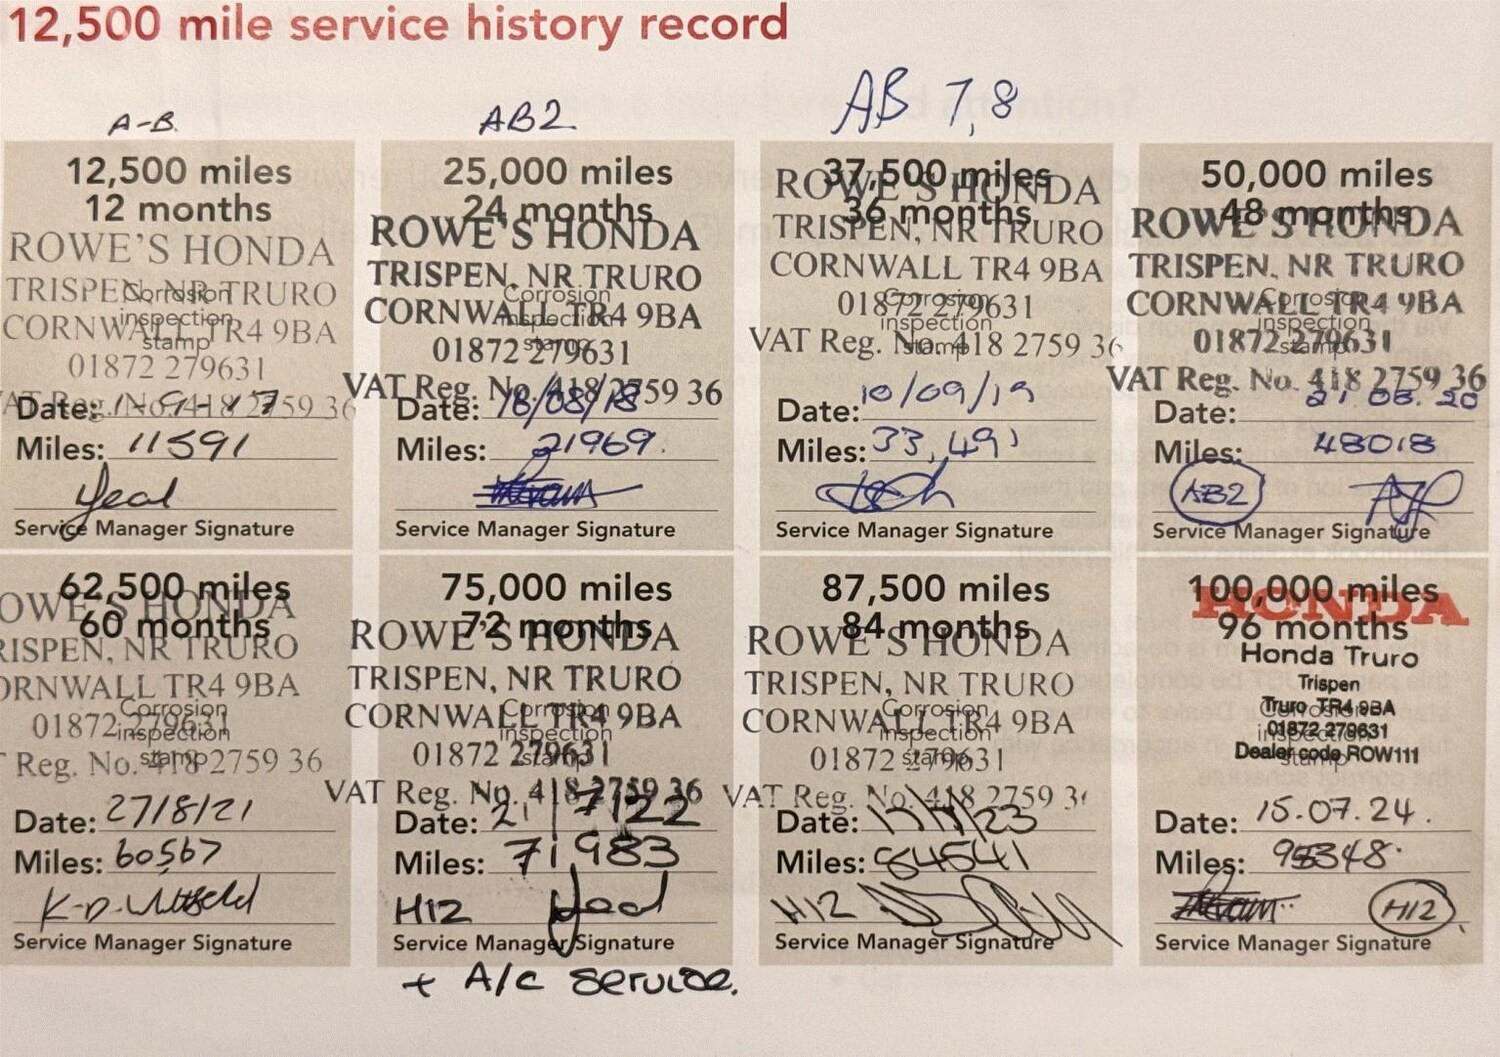 12,500 mile service history record
A-B.
AB2
AB 7,8
12,500 miles
12 months
ROWE'S HONDA
TRISPEN, NR TRURO
CORNWALL TR4 9BA
01872 279631
Corrosion
inspection
stamp
VAT Reg. No. 418 2759 36
Date: 1-9-17
Miles: 11591
Service Manager Signature
25,000 miles
24 months
ROWE'S HONDA
TRISPEN, NR TRURO
CORNWALL TR4 9BA
01872 279631
Corrosion
inspection
stamp
VAT Reg. No. 418 2759 36
Date: 16/08/18
Miles: 21969.
Service Manager Signature
37,500 miles
36 months
ROWE'S HONDA
TRISPEN, NR TRURO
CORNWALL TR4 9BA
01872 279631
Corrosion
inspection
stamp
VAT Reg. No. 418 2759 36
Date: 10/09/19
Miles: 33,491
Service Manager Signature
50,000 miles
48 months
ROWE'S HONDA
TRISPEN, NR TRURO
CORNWALL TR4 9BA
01872 279631
Corrosion
inspection
stamp
VAT Reg. No. 418 2759 36
Date: 21 08. 20
Miles: 48018
AB2
Service Manager Signature
62,500 miles
60 months
OWE'S HONDA
RISPEN, NR TRURO
ORNWALL TR4 9BA
01872 279631
Corrosion
inspection
stamp
Reg. No. 418 2759 36
Date: 27/8/21
Miles: 60567
Service Manager Signature
75,000 miles
72 months
ROWE'S HONDA
TRISPEN, NR TRURO
CORNWALL TR4 9BA
01872 279631
Corrosion
inspection
stamp
VAT Reg. No. 418 2759 36
Date: 21/7/22
Miles: 71983
H12
Service Manager Signature
+ A/C service.
87,500 miles
84 months
ROWE'S HONDA
TRISPEN, NR TRURO
CORNWALL TR4 9BA
01872 279631
Corrosion
inspection
stamp
VAT Reg. No. 418 2759 36
Date:
Miles: 84541
H12
Service Manager Signature
100,000 miles
96 months
HONDA
Honda Truro
Trispen
Truro TR4 9BA
01872 279631
Dealer code ROW111
Corrosion
inspection
stamp
Date: 15.07.24.
Miles: 95348.
H12
Service Manager Signature